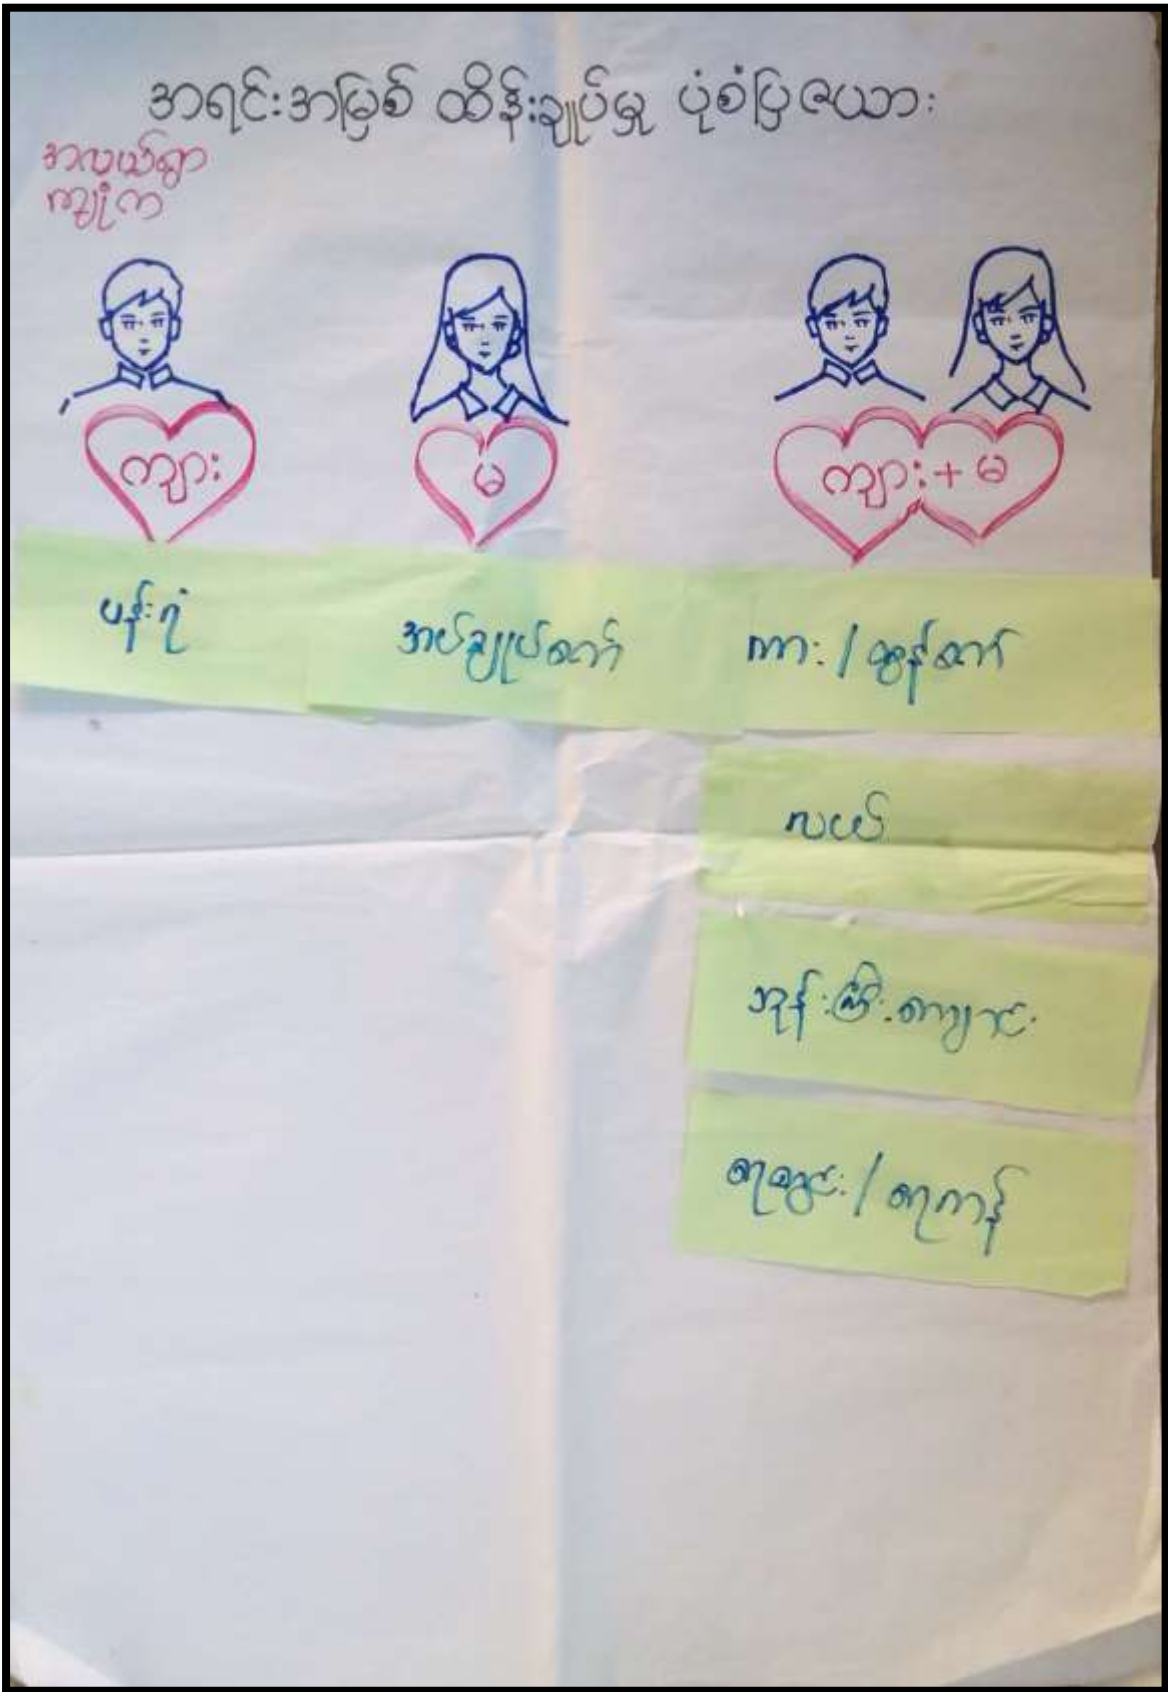 အရင်းအမြစ် ထိန်းချုပ်မှု ပုံစံပြဇယား
အလယ်ရွာ
ကျုံက
ကျား
မ
ကျား + မ
ပန်းရံ
အပ်ချုပ်စက်
ကား / ထွန်စက်
လယ်
ဘုန်းကြီးကျောင်း
ရေတွင်း / ရေကန်